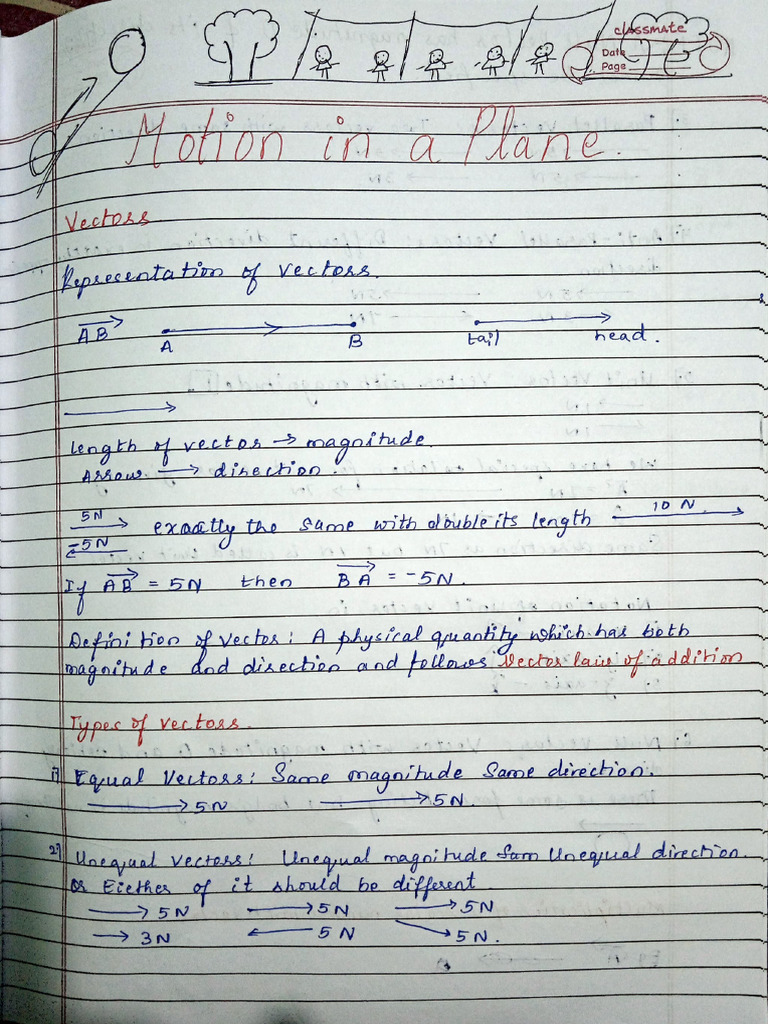 classmate
Date
Page
Motion in a Plane.
Vectors
Representation of vectors.
AB A B tail head.
length of vector → magnitude.
Arrow → direction.
5N exaactly the same with double its length 10 N
-5N
If AB = 5N then BA = -5N.
Definition of vector: A physical quantity which has both
magnitude and direction and follows Vector law of addition
Types of vectors.
1) Equal Vectors: Same magnitude Same direction.
→ 5N → 5N
2) Unequal vectors: Unequal magnitude Sam Unequal direction.
or Eiether of it should be different.
→ 5N → 5N → 5N
→ 3N ← 5N → 5N.